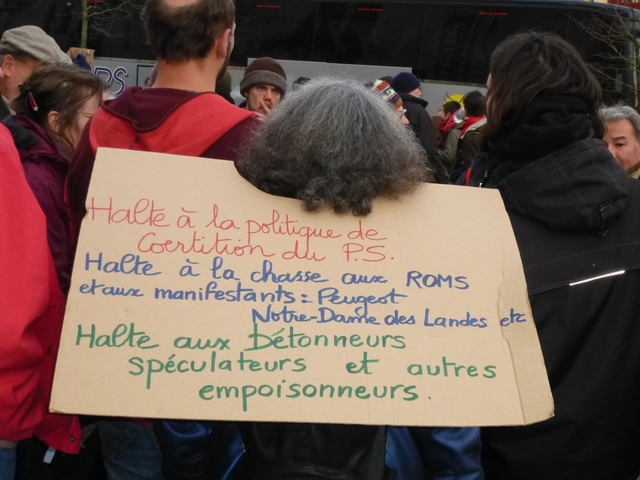 Halte à la politique de
Coertition du P.S.
Halte à la chasse aux ROMS
et aux manifestants : Peugeot
Notre-Dame des Landes etc
Halte aux bétonneurs
spéculateurs et autres
empoisonneurs.